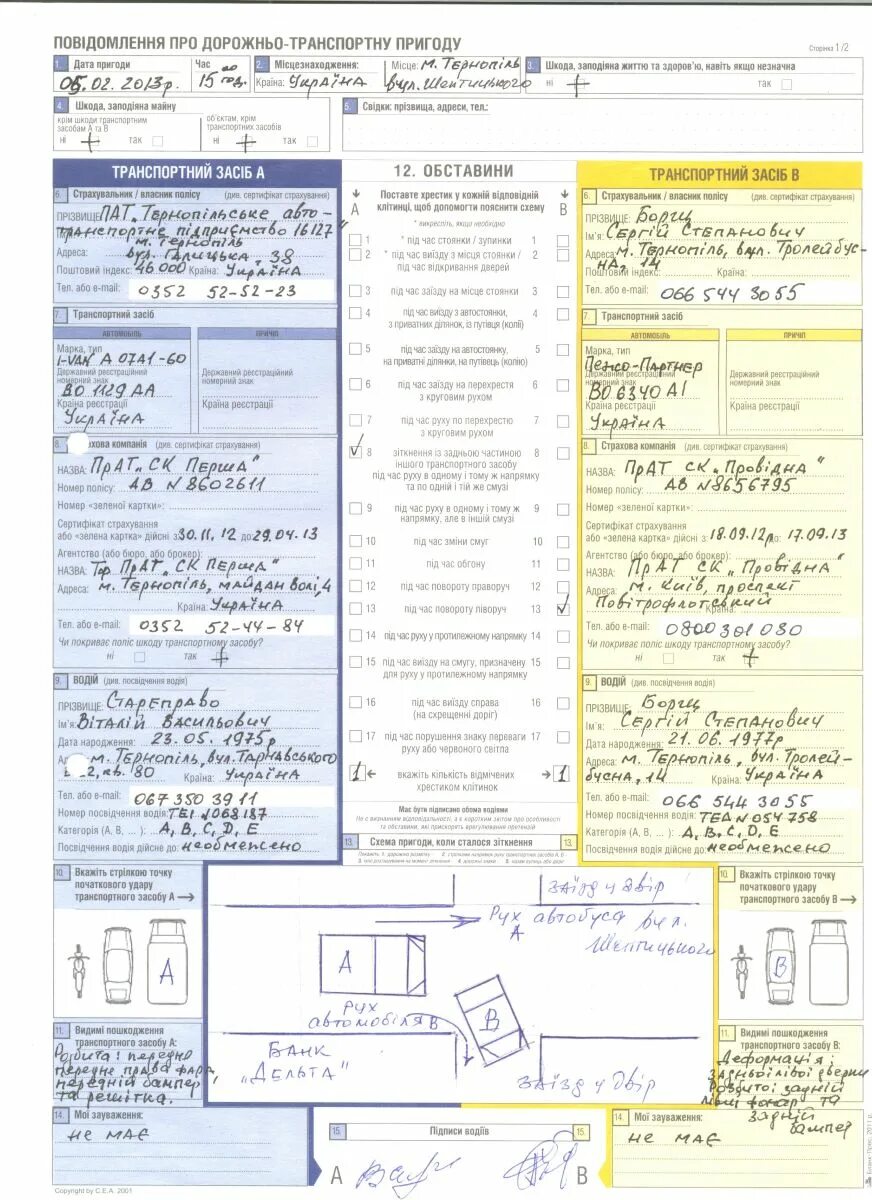 ПОВІДОМЛЕННЯ ПРО ДОРОЖНЬО-ТРАНСПОРТНУ ПРИГОДУ
Сторінка 1/2
1. Дата пригоди
05.02.2013р.
Час
15 00 год.
2. Місцезнаходження:
Країна: Україна
Місце: м. Тернопіль
вул. Шептицького
3. Шкода, заподіяна життю та здоров'ю, навіть якщо незначна
ні так
4. Шкода, заподіяна майну
крім шкоди транспортним засобам А та В
ні так
об'єктам, крім транспортних засобів
ні так
5. Свідки: прізвища, адреси, тел.:
ТРАНСПОРТНИЙ ЗАСІБ А
6. Страхувальник / власник полісу (див. сертифікат страхування)
ПРІЗВИЩЕ: ПАТ „Тернопільське авто-
транспортне підприємство 16127"
м. Тернопіль
Адреса: вул. Галицька, 38
Поштовий індекс: 46000 Країна: Україна
Тел. або e-mail: 0352 52-52-23
7. Транспортний засіб
АВТОМОБІЛЬ
ПРИЧІП
Марка, тип
I-VAN A 07A1-60
Державний реєстраційний номерний знак
ВО 1129 АА
Країна реєстрації
Україна
Державний реєстраційний номерний знак
Країна реєстрації
8. Страхова компанія (див. сертифікат страхування)
НАЗВА: ПрАТ „СК Перша"
Номер полісу: АВ N 8602611
Номер «зеленої картки»:
Сертифікат страхування
або «зелена картка» дійсні з 30.11.12 до 29.04.13
Агентство (або бюро, або брокер):
НАЗВА: Тф ПрАТ „СК Перша"
Адреса: м. Тернопіль, майдан Волі, 4
Країна: Україна
Тел. або e-mail: 0352 52-44-84
Чи покриває поліс шкоду транспортному засобу?
ні так
9. ВОДІЙ (див. посвідчення водія)
ПРІЗВИЩЕ: Стареправо
Ім'я: Віталій Васильович
Дата народження: 23.05.1975р
Адреса: м. Тернопіль, вул. Тарнавського
2, кв. 80 Країна: Україна
Тел. або e-mail: 067 350 39 11
Номер посвідчення водія: ТЕІ N068187
Категорія (А, В, ... ): А, В, С, D, Е
Посвідчення водія дійсне до: необмежено
12. ОБСТАВИНИ
А
Поставте хрестик у кожній відповідній клітинці, щоб допомогти пояснити схему
В
* викресліть, якщо необхідно
1 * під час стоянки / зупинки 1
2 * під час виїзду з місця стоянки / під час відкривання дверей 2
3 під час заїзду на місце стоянки 3
4 під час виїзду з автостоянки, з приватних ділянок, із путівця (колії) 4
5 під час заїзду на автостоянку, на приватні ділянки, на путівець (колію) 5
6 під час заїзду на перехрестя з круговим рухом 6
7 під час руху по перехрестю з круговим рухом 7
8 зіткнення із задньою частиною іншого транспортного засобу під час руху в одному і тому ж напрямку та по одній і тій же смузі 8
9 під час руху в одному і тому ж напрямку, але в іншій смузі 9
10 під час зміни смуг 10
11 під час обгону 11
12 під час повороту праворуч 12
13 під час повороту ліворуч 13
14 під час руху у протилежному напрямку 14
15 під час виїзду на смугу, призначену для руху у протилежному напрямку 15
16 під час виїзду справа (на схрещенні доріг) 16
17 під час порушення знака переваги руху або червоного світла 17
1 вкажіть кількість відмічених хрестиком клітинок 1
Має бути підписано обома водіями
13. Схема пригоди, коли сталося зіткнення 13.
ТРАНСПОРТНИЙ ЗАСІБ В
6. Страхувальник / власник полісу (див. сертифікат страхування)
ПРІЗВИЩЕ: Борец
Ім'я: Сергій Степанович
Адреса: м. Тернопіль, вул. Тролейбус-
на, 14
Поштовий індекс: Країна:
Тел. або e-mail: 066 544 3055
7. Транспортний засіб
АВТОМОБІЛЬ
ПРИЧІП
Марка, тип
Пежо-Партнер
Державний реєстраційний номерний знак
ВО 6340 АІ
Країна реєстрації
Україна
Державний реєстраційний номерний знак
Країна реєстрації
8. Страхова компанія (див. сертифікат страхування)
НАЗВА: ПрАТ СК „Провідна"
Номер полісу: АВ N8656795
Номер «зеленої картки»:
Сертифікат страхування
або «зелена картка» дійсні з 18.09.12р до 17.09.13
Агентство (або бюро, або брокер):
НАЗВА: ПрАТ СК „Провідна"
Адреса: м. Київ, проспект
Повітрофлотський
Країна:
Тел. або e-mail: 0800 301 080
Чи покриває поліс шкоду транспортному засобу?
ні так
9. ВОДІЙ (див. посвідчення водія)
ПРІЗВИЩЕ: Борец
Ім'я: Сергій Степанович
Дата народження: 21.06.1977р
Адреса: м. Тернопіль, вул. Тролей-
бусна, 14 Країна: Україна
Тел. або e-mail: 066 544 3055
Номер посвідчення водія: ТЕА N 054758
Категорія (А, В, ... ): А, В, С, D, Е
Посвідчення водія дійсне до: необмежено
10. Вкажіть стрілкою точку початкового удару транспортного засобу А
А
11. Видимі пошкодження транспортного засобу А:
Розбита: передня
передня права фара,
передній бампер,
та решітка.
14. Мої зауваження:
не має
заїзд у двір
Рух автобуса вул.
А Шептицького
А
Рух
автомобіля В
В
Банк
„Дельта"
заїзд у двір
15. Підписи водіїв 15.
А В
10. Вкажіть стрілкою точку початкового удару транспортного засобу В
В
11. Видимі пошкодження транспортного засобу В:
Деформація:
задньої лівої дверки
Розбито: задній
лівий фонар та
задній
бампер
14. Мої зауваження:
не має
Copyright by C.E.A. 2001